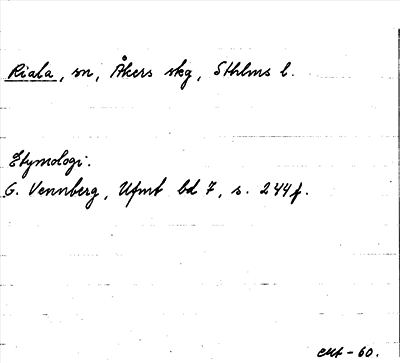 Riala, sn, Åkers skg, Sthlms l.
Etymologi.
G. Vennberg, Ufmt bd 7, s. 244 f.
-60.